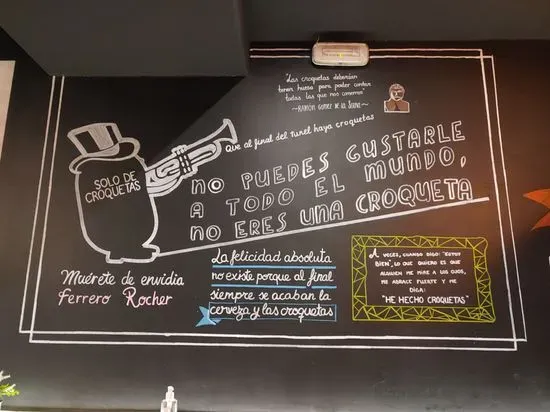 "Las croquetas deberían
tener hueso para poder contar
todas las que nos comemos"
~RAMÓN GOMEZ DE LA SERNA~
Que al final del tunel haya croquetas
SOLO DE
CROQUETAS
NO PUEDES GUSTARLE
A TODO EL MUNDO,
NO ERES UNA CROQUETA
Muérete de envidia
Ferrero Rocher
La felicidad absoluta
no existe porque al final
siempre se acaban la
cerveza y las croquetas
A VECES, CUANDO DIGO: "ESTOY
BIEN", LO QUE QUIERO ES QUE
ALGUIEN ME MIRE A LOS OJOS,
ME ABRACE FUERTE Y ME
DIGA:
"HE HECHO CROQUETAS"